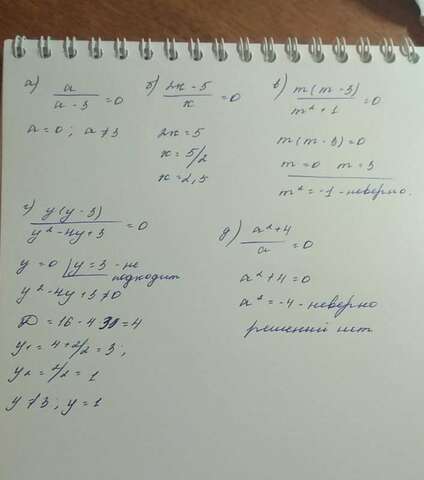 а) a/(a-3) = 0
a = 0; a ≠ 3
б) (2x - 5)/x = 0
2x = 5
x = 5/2
x = 2,5
в) m(m - 3)/(m² + 1) = 0
m(m - 3) = 0
m = 0 m = 3
m² = -1 - неверно.
г) y(y - 3)/(y² - 4y + 3) = 0
y = 0 y = 3 - не подходит
y² - 4y + 3 ≠ 0
D = 16 - 4·3 = 4
y₁ = 4+2/2 = 3;
y₂ = 2/2 = 1
y ≠ 3; y = 1
д) (a² + 4)/a = 0
a² + 4 = 0
a² = -4 - неверно
решений нет